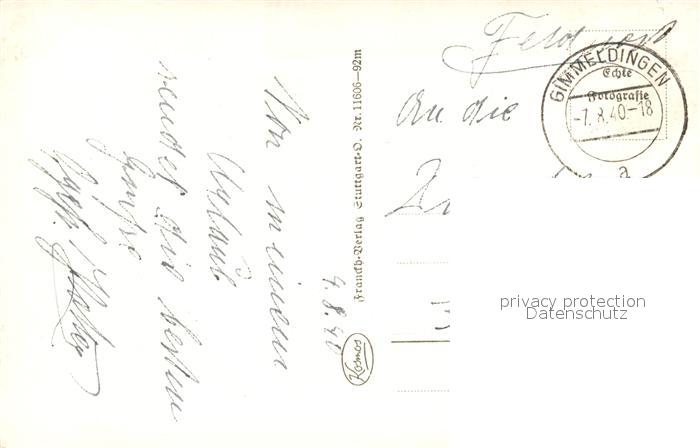 Von meinem
Urlaub
sendet die besten
Grüße
4.8.40
Franckh-Verlag Stuttgart-O. Nr. 11606—92m
Kosmos
Feldpost
An die
GIMMELDINGEN
Echte
Fotografie
-7.8.40-18
a
privacy protection
Datenschutz